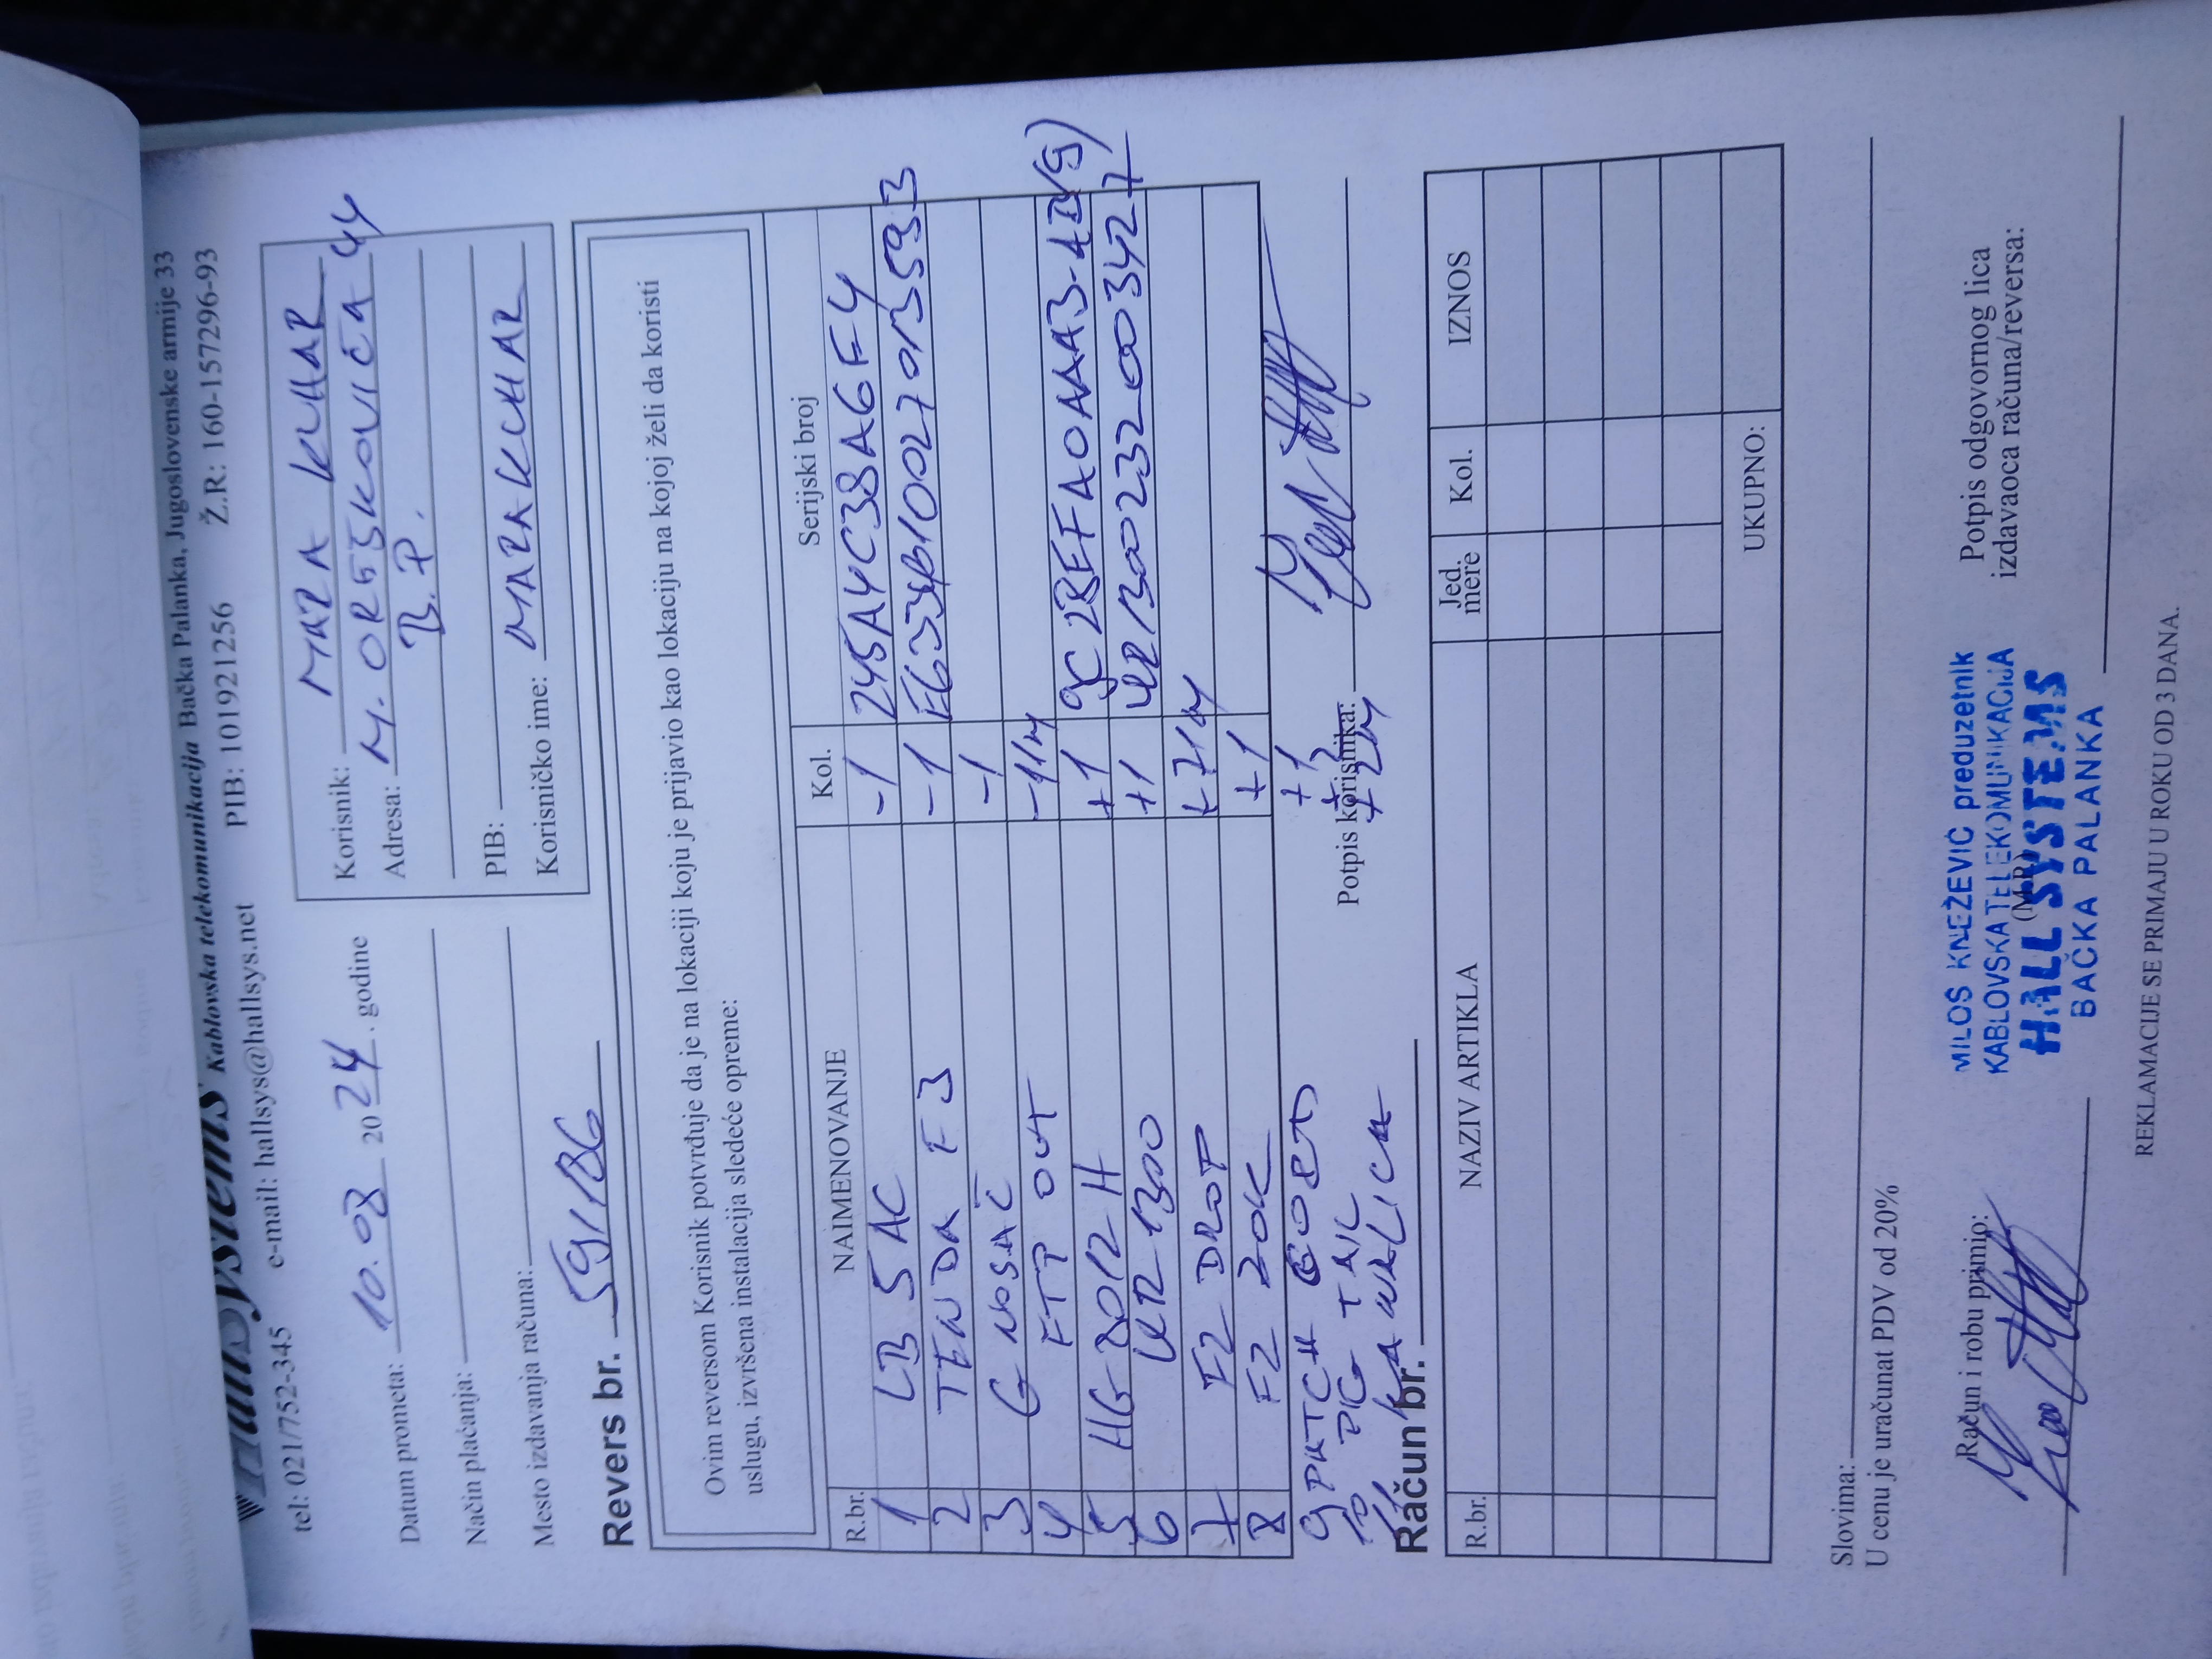 HallSystems Kablovska telekomunikacija Bačka Palanka, Jugoslovenske armije 33
tel: 021/752-345 e-mail: hallsys@hallsys.net PIB: 101921256 Ž.R: 160-157296-93
Datum prometa: 10.08 2024. godine
Način plaćanja:
Mesto izdavanja računa:
Korisnik: MARA KUHAR
Adresa: M. OREŠKOVIĆA 44
B.P.
PIB:
Korisničko ime: MARAKUHAR
Revers br. 59186
Ovim reversom Korisnik potvrđuje da je na lokaciji koju je prijavio kao lokaciju na kojoj želi da koristi
uslugu, izvršena instalacija sledeće opreme:
R.br. NAIMENOVANJE Kol. Serijski broj
1 LB 5 AC -1 245A4C38A6F4
2 TENDA F3 -1
3 G NOSAČ -1
4 FTP OUT -11M
5 HG 8012H +1
6 UR 1300 +1 UR1300232003427
7 F2 DROP +71M
8 F2 ZOK +1
9 PATCH +1
10 PIG TAIL +2
11 KANALICA +2M
Potpis korisnika:
Račun br.
R.br. NAZIV ARTIKLA Jed. mere Kol. IZNOS
UKUPNO:
Slovima:
U cenu je uračunat PDV od 20%
Račun i robu primio:
(M.P.)
MILOS KNEŽEVIĆ preduzetnik
KABLOVSKA TELEKOMUNIKACIJA
HALL SYSTEMS
BAČKA PALANKA
Potpis odgovornog lica
izdavaoca računa/reversa:
REKLAMACIJE SE PRIMAJU U ROKU OD 3 DANA.